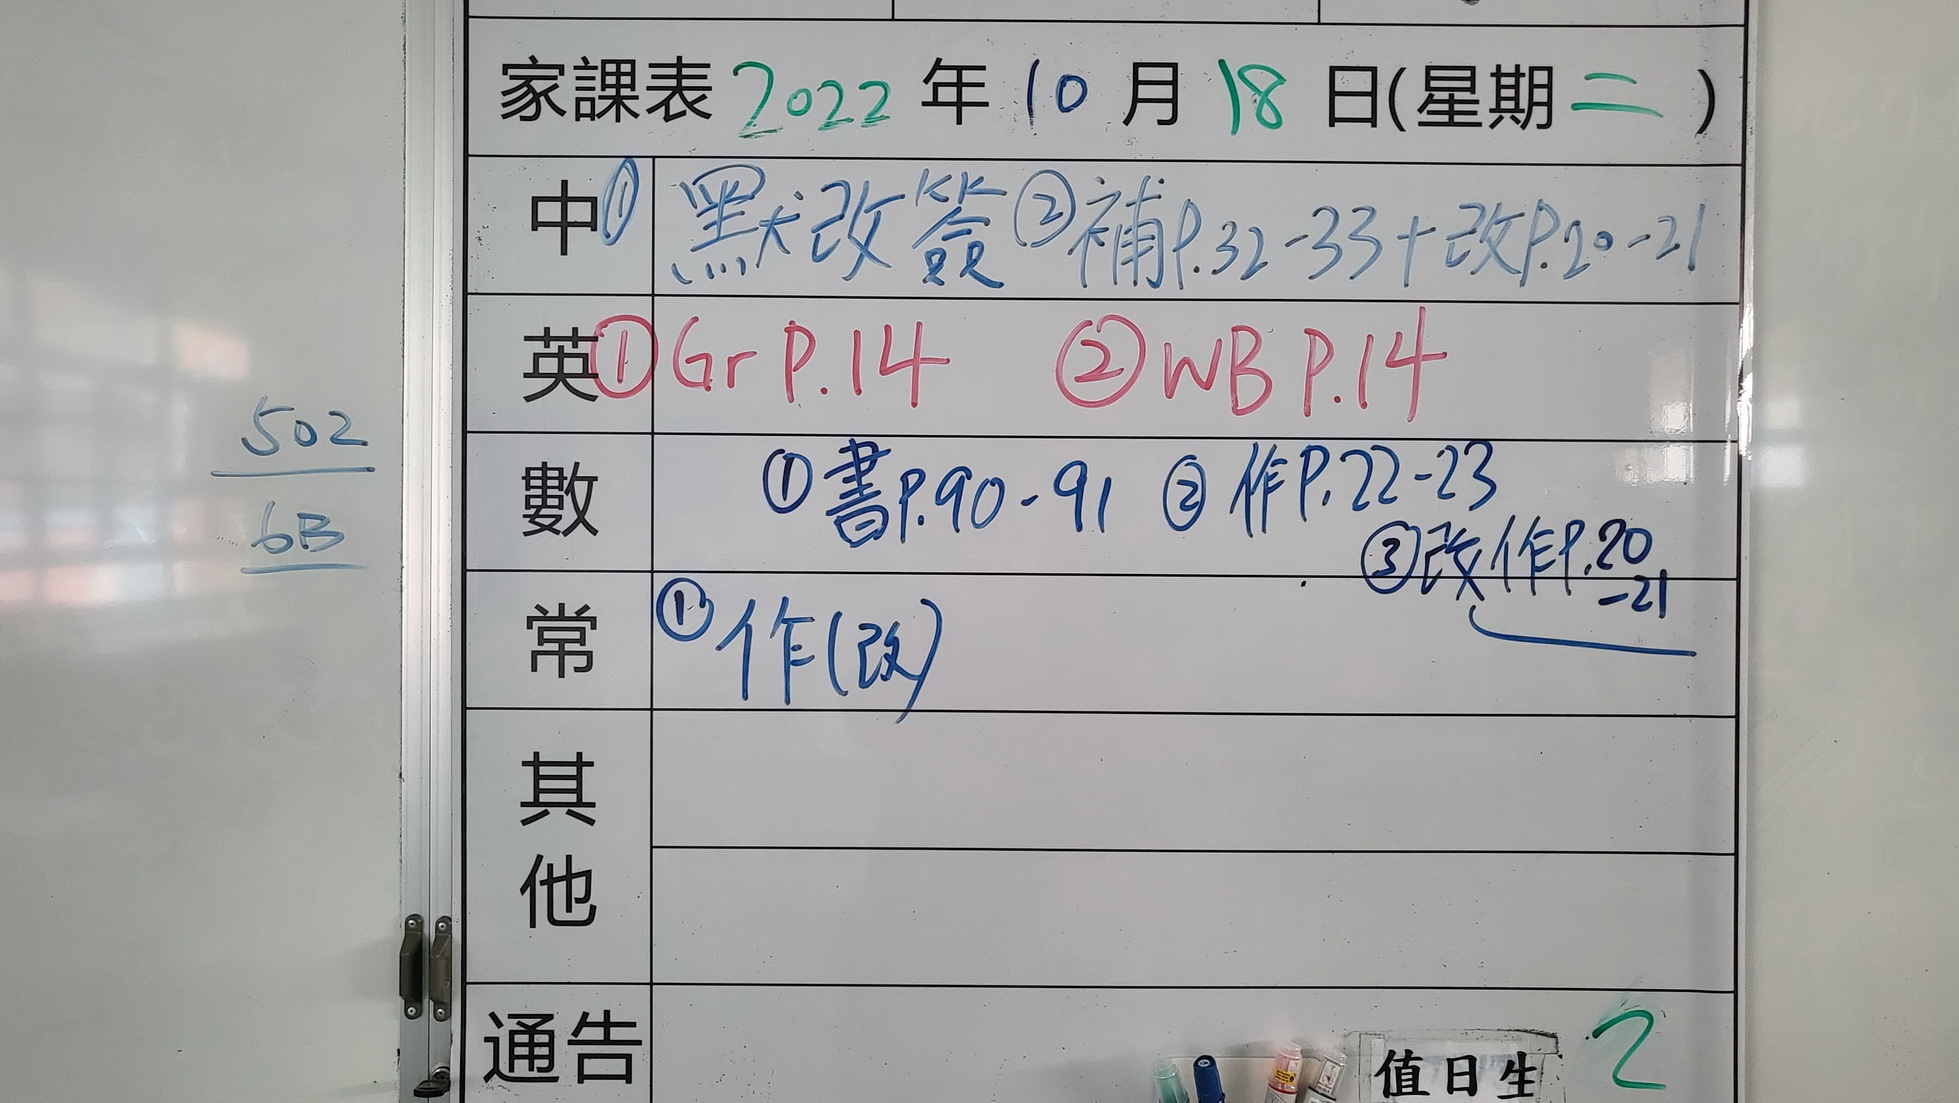 家課表 2022 年 10 月 18 日(星期二)
中 ① 默改簽 ② 補P.32-33+改P.20-21
英 ① Gr P.14 ② WB P.14
502
6B
數 ① 書P.90-91 ② 作P.22-23
③ 改作P.20
-21
常 ① 作(改)
其
他
通告
值日生 2